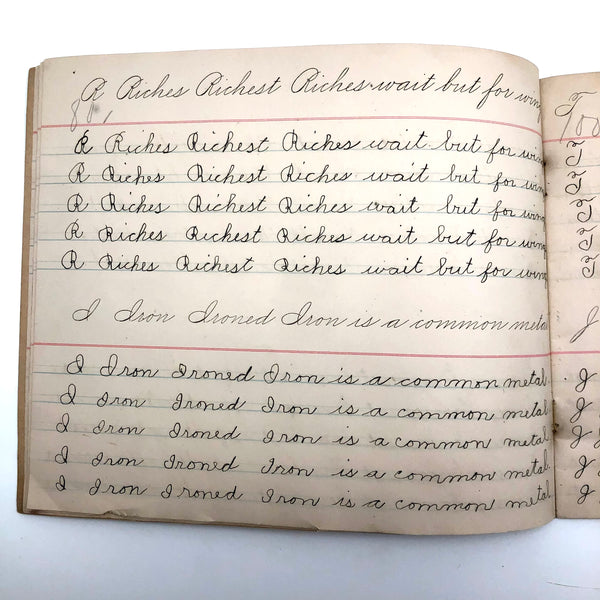 R Riches Richest Riches wait but for wing
R Riches Richest Riches wait but for wing
R Riches Richest Riches wait but for wing
R Riches Richest Riches wait but for wing
R Riches Richest Riches wait but for wing
R Riches Richest Riches wait but for wing
I Iron Ironed Iron is a common metal
I Iron Ironed Iron is a common metal.
I Iron Ironed Iron is a common metal.
I Iron Ironed Iron is a common metal.
I Iron Ironed Iron is a common metal.
I Iron Ironed Iron is a common metal.